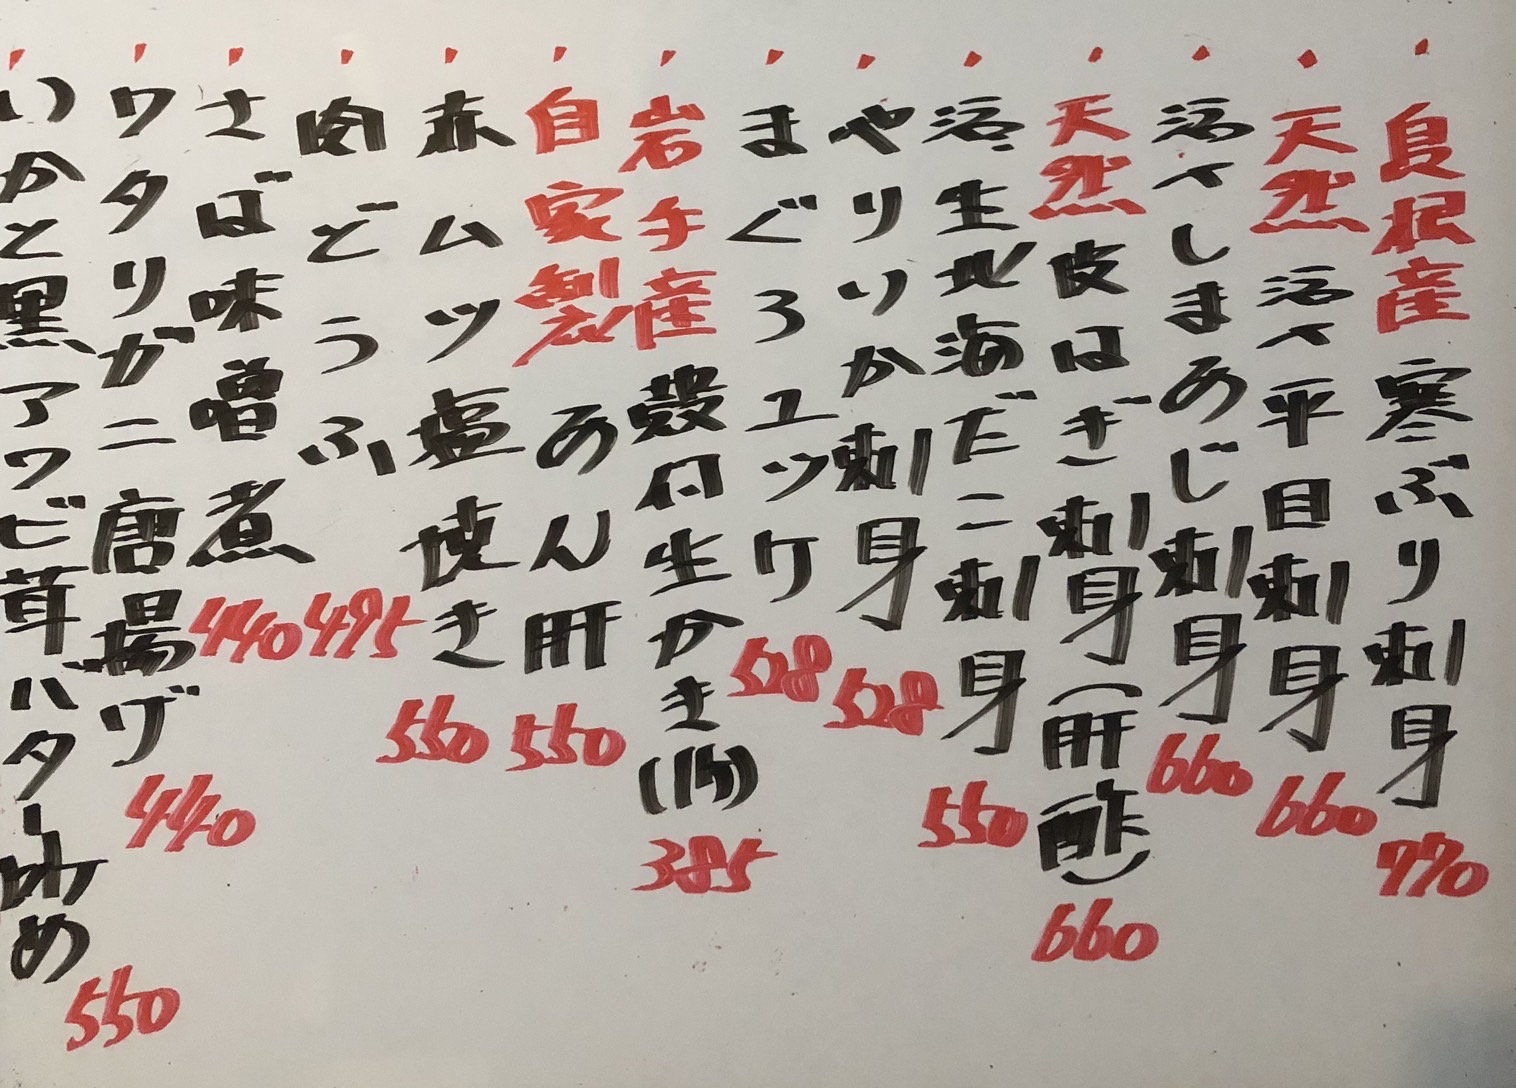 ・長根産 寒ぶり刺身 770
・天然 活〆平目刺身 660
・活〆しまあじ刺身 660
・天然 皮はぎ刺身(肝酢) 660
・活生北海だこ刺身 550
・やりいか刺身 528
・まぐろユッケ 528
・岩手産 殻付生かき(1ケ) 385
・自家製 あん肝 550
・赤ムツ塩焼き 550
・肉どうふ 495
・さば味噌煮 440
・ワタリガニ唐揚げ 440
・いかと黒アワビ茸バター炒め 550